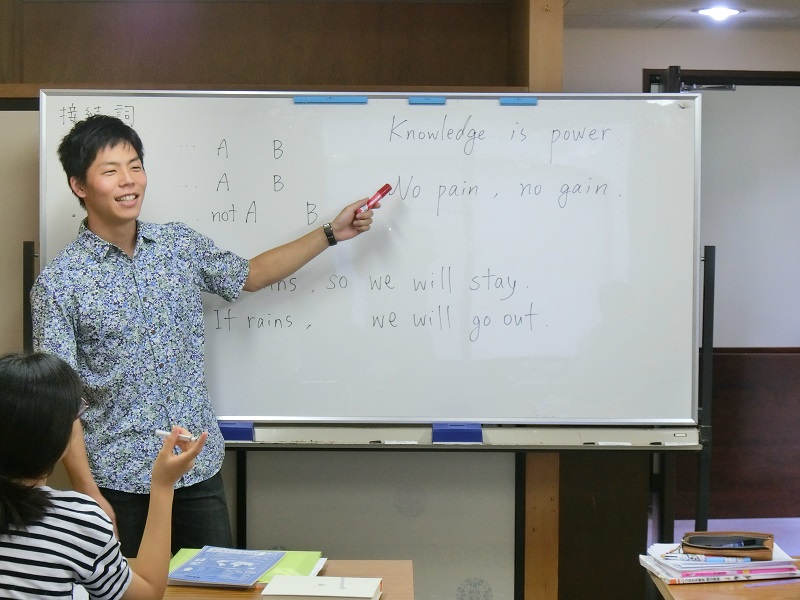 接続詞
... A B
... A B
... not A B
Knowledge is power
No pain, no gain.
ins, so we will stay.
It rains, we will go out.